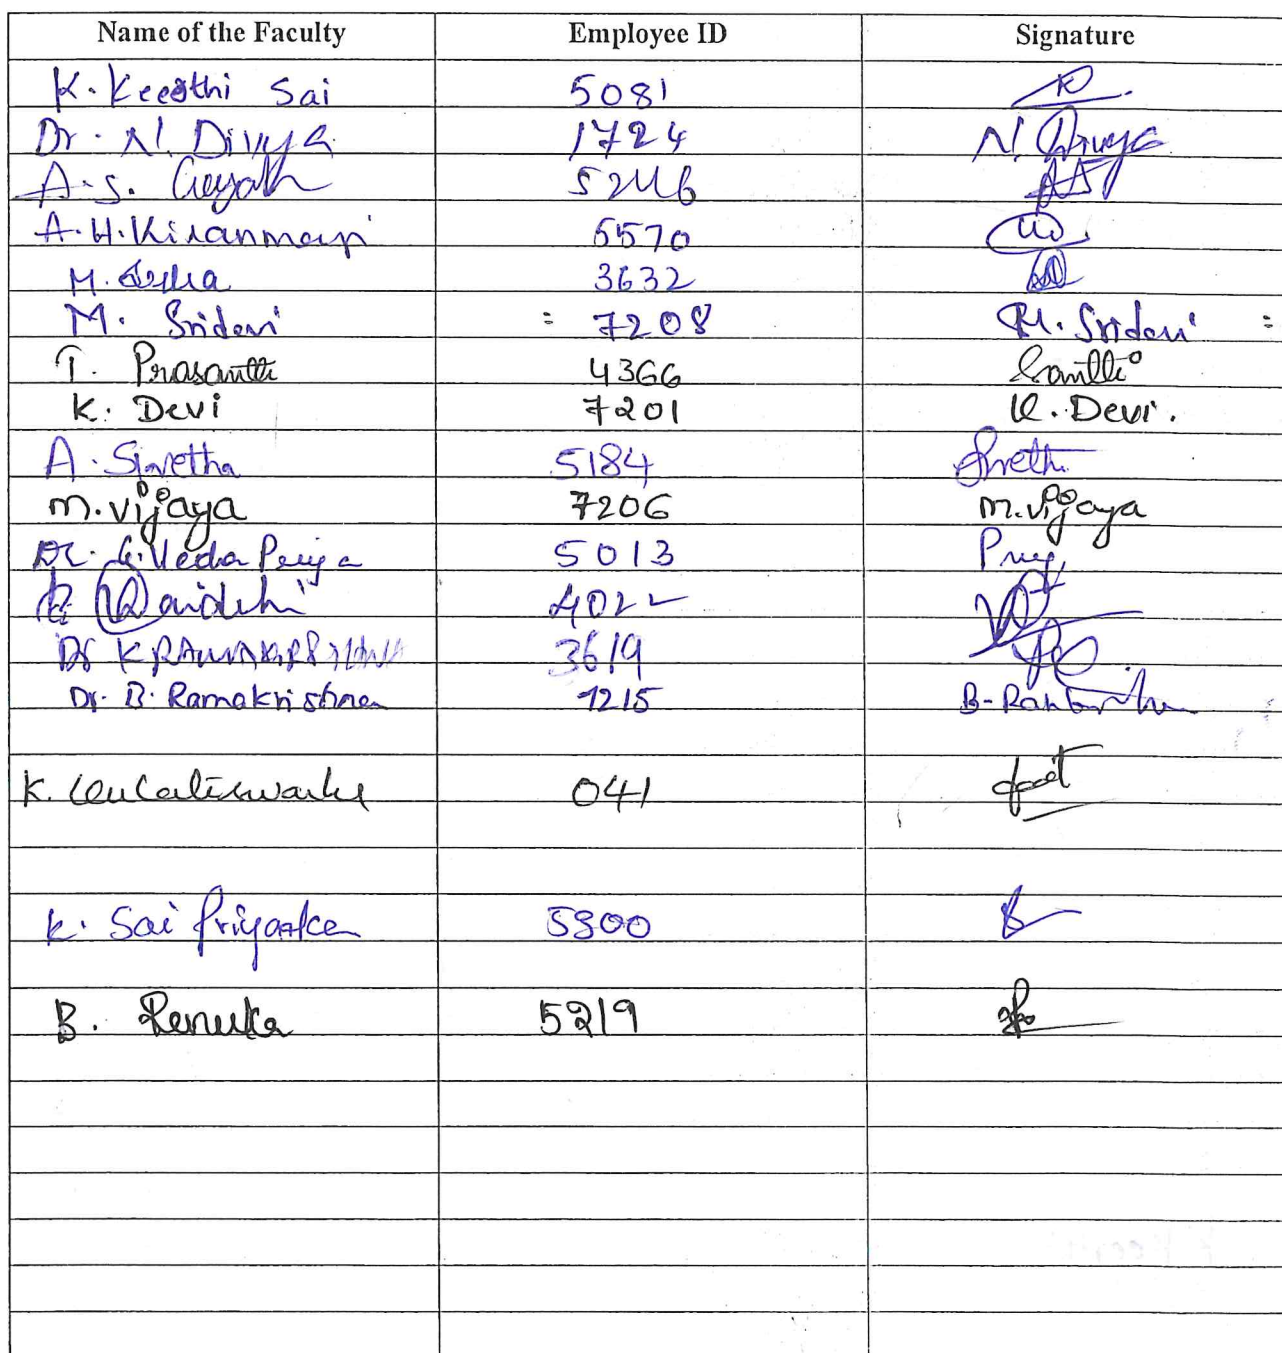 Name of the Faculty Employee ID Signature
K. Keerthi Sai 5081
Dr. N. Divya 1724 N. Divya
A.S. Gayath 5246
A.H.Kiranmayi 5570
M. 3632
M. Sridevi : 7208 M. Sridevi :
T. Prasanthi 4366 Santhi
K. Devi 7201 K. Devi.
A. Swetha 5184 Sweth
M.Vijaya 7206 M.Vijaya
Dr. G. Veda Priya 5013 Priy
Vaidehi 4022
Dr K RAMAKRISHNA 3619
Dr. B. Ramakrishna 1215
K. Venkateswarlu 041
K. Sai Priyanka 5300
B. Renuka 5219